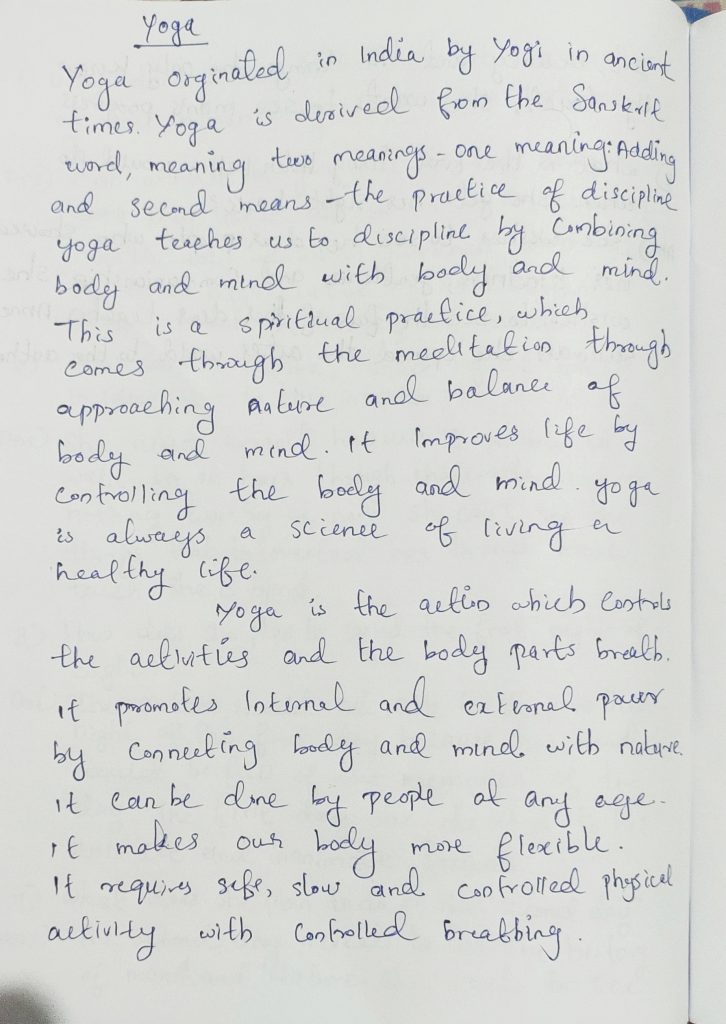 Yoga
Yoga orginated in India by Yogi in ancient
times. Yoga is derived from the Sanskrit
word, meaning two meanings - one meaning: Adding
and second means - the practice of discipline
yoga teaches us to discipline by Combining
body and mind with body and mind.
This is a spiritiual practice, which
comes through the meditation through
approaching nature and balance of
body and mind. It Improves life by
Controlling the body and mind. yoga
is always a science of living a
healthy life.
Yoga is the action which Controls
the activities and the body parts breath.
it promotes Internal and external power
by Connecting body and mind with nature.
it can be done by people at any age.
it makes our body more flexible.
It requires safe, slow and controlled physical
activity with Controlled breathing.